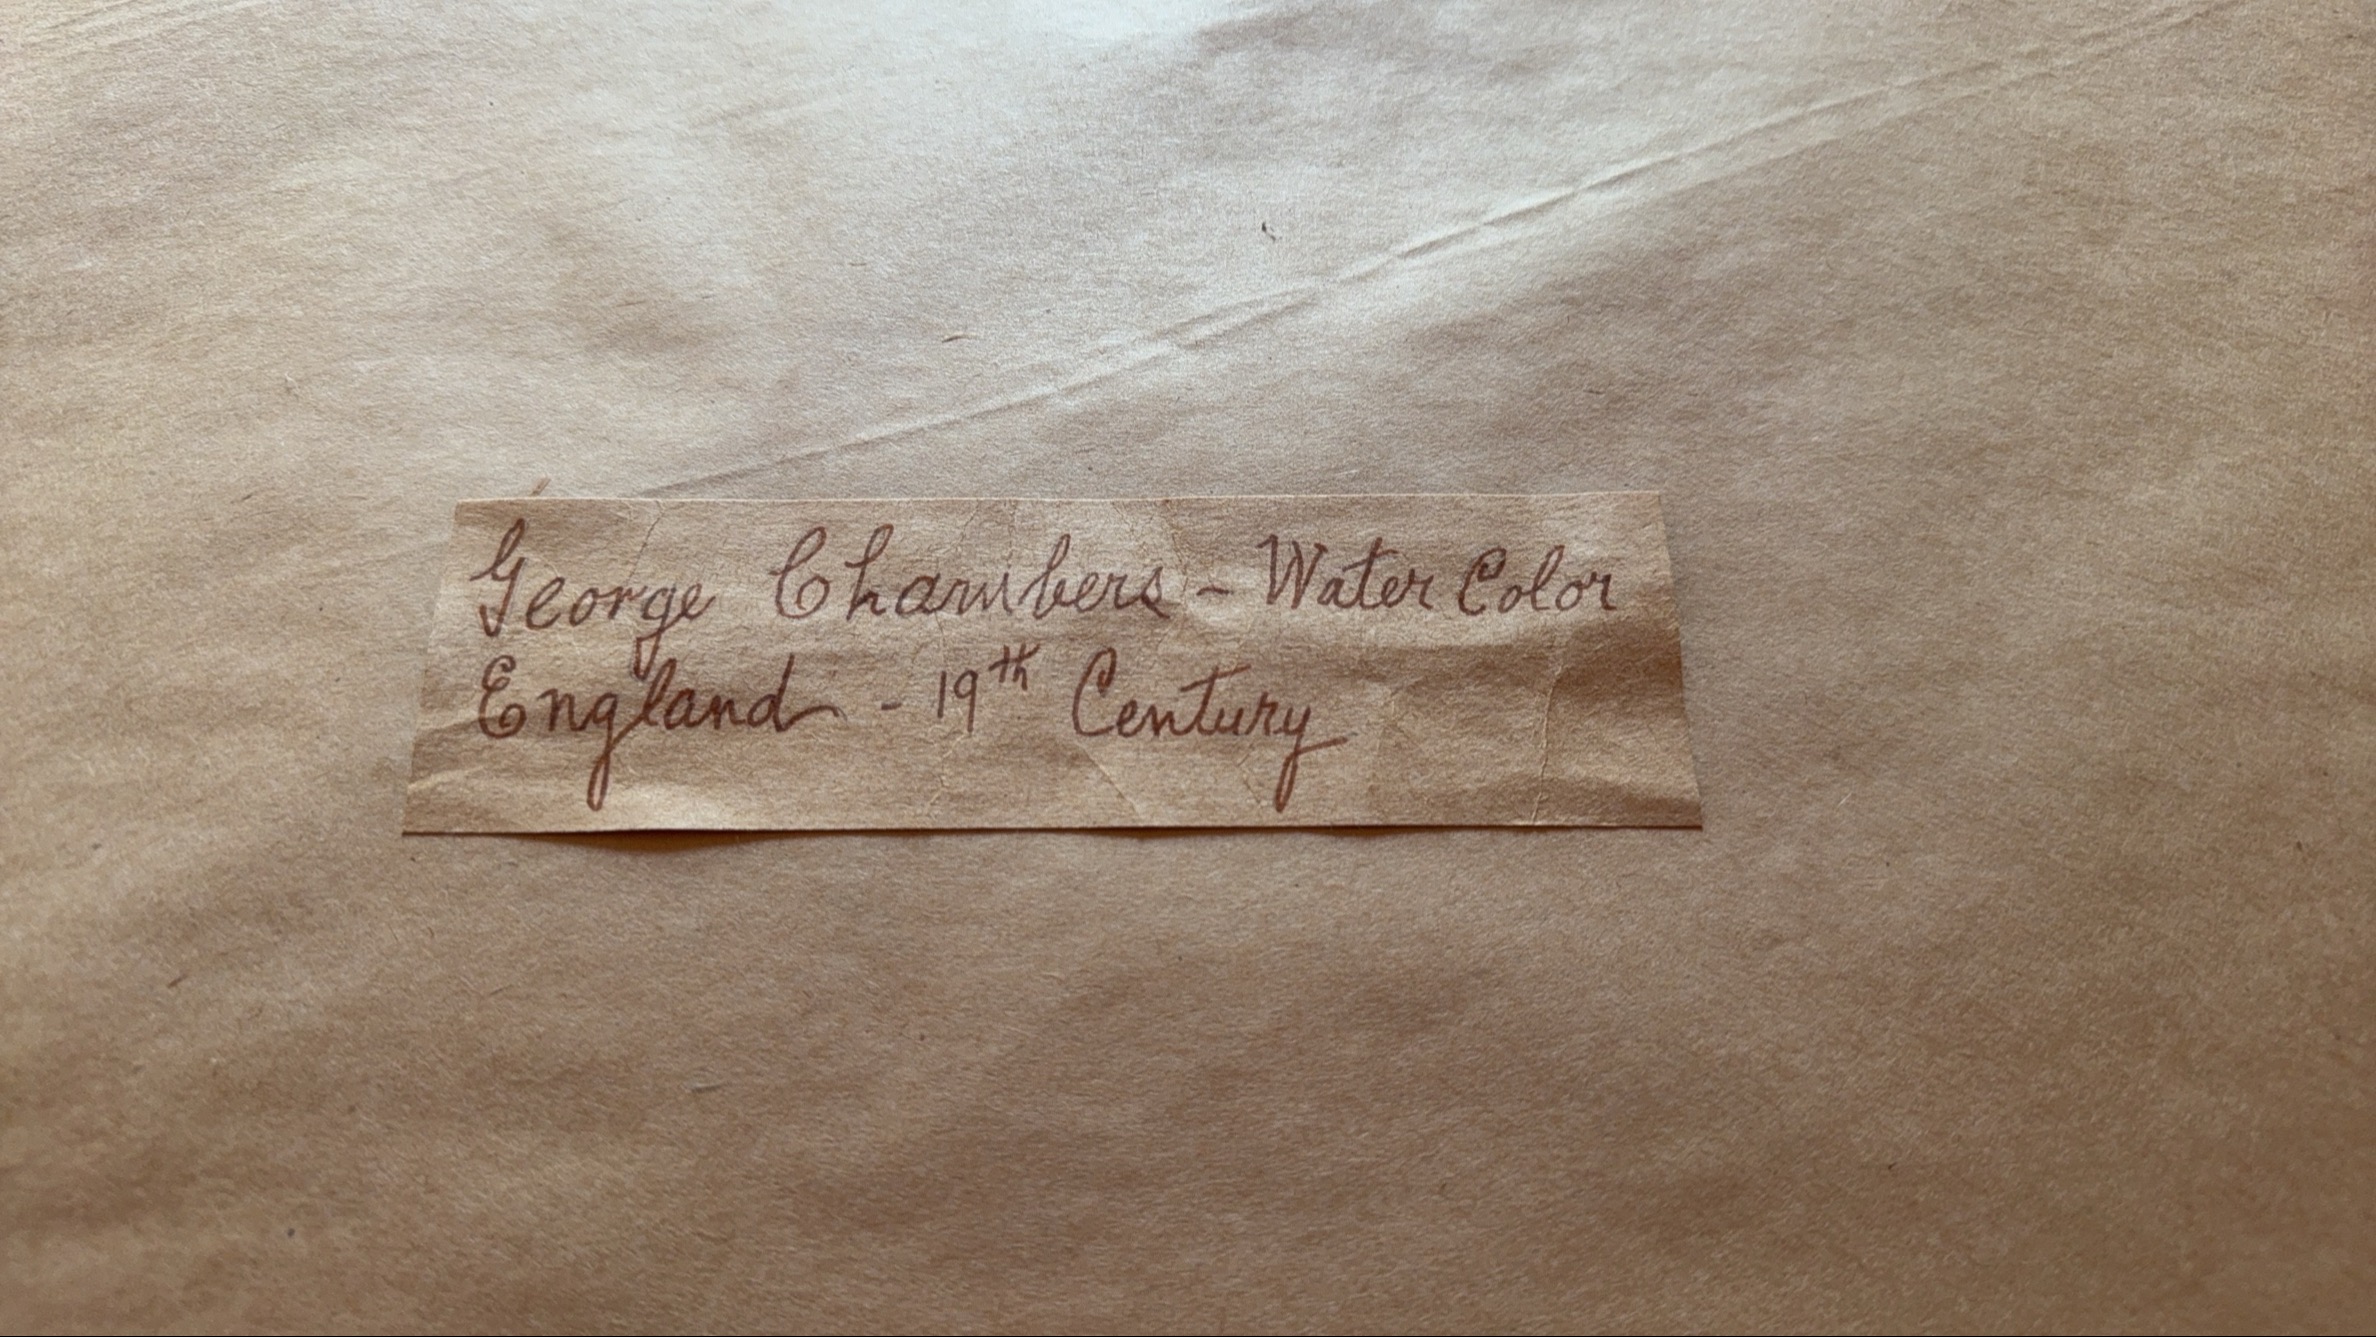 George Chambers - Water Color
England - 19th Century